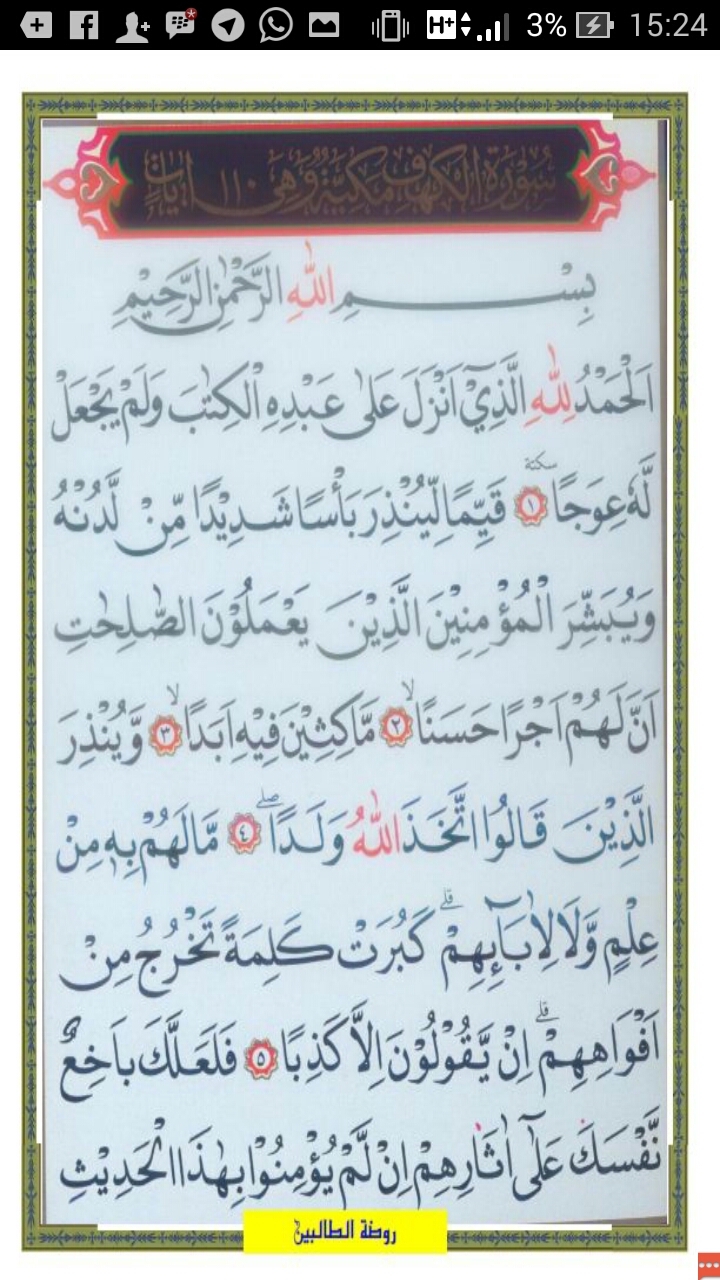 H+ 3% 15:24
سُوْرَةُ الْكَهْفِ مَكِّيَّةٌ وَهِيَ ١١٠ اٰيَاتٍ
بِسْمِ اللّٰهِ الرَّحْمٰنِ الرَّحِيْمِ
اَلْحَمْدُ لِلّٰهِ الَّذِيْٓ اَنْزَلَ عَلٰى عَبْدِهِ الْكِتٰبَ وَلَمْ يَجْعَلْ
لَّهٗ عِوَجًا سكتة ١ قَيِّمًا لِّيُنْذِرَ بَأْسًا شَدِيْدًا مِّنْ لَّدُنْهُ
وَيُبَشِّرَ الْمُؤْمِنِيْنَ الَّذِيْنَ يَعْمَلُوْنَ الصّٰلِحٰتِ
اَنَّ لَهُمْ اَجْرًا حَسَنًاۙ ٢ مَّاكِثِيْنَ فِيْهِ اَبَدًاۙ ٣ وَّيُنْذِرَ
الَّذِيْنَ قَالُوا اتَّخَذَ اللّٰهُ وَلَدًاۖ ٤ مَّا لَهُمْ بِهٖ مِنْ
عِلْمٍ وَّلَا لِاٰبَاۤىِٕهِمْۗ كَبُرَتْ كَلِمَةً تَخْرُجُ مِنْ
اَفْوَاهِهِمْۗ اِنْ يَّقُوْلُوْنَ اِلَّا كَذِبًا ٥ فَلَعَلَّكَ بَاخِعٌ
نَّفْسَكَ عَلٰٓى اٰثَارِهِمْ اِنْ لَّمْ يُؤْمِنُوْا بِهٰذَا الْحَدِيْثِ
روضة الطالبين